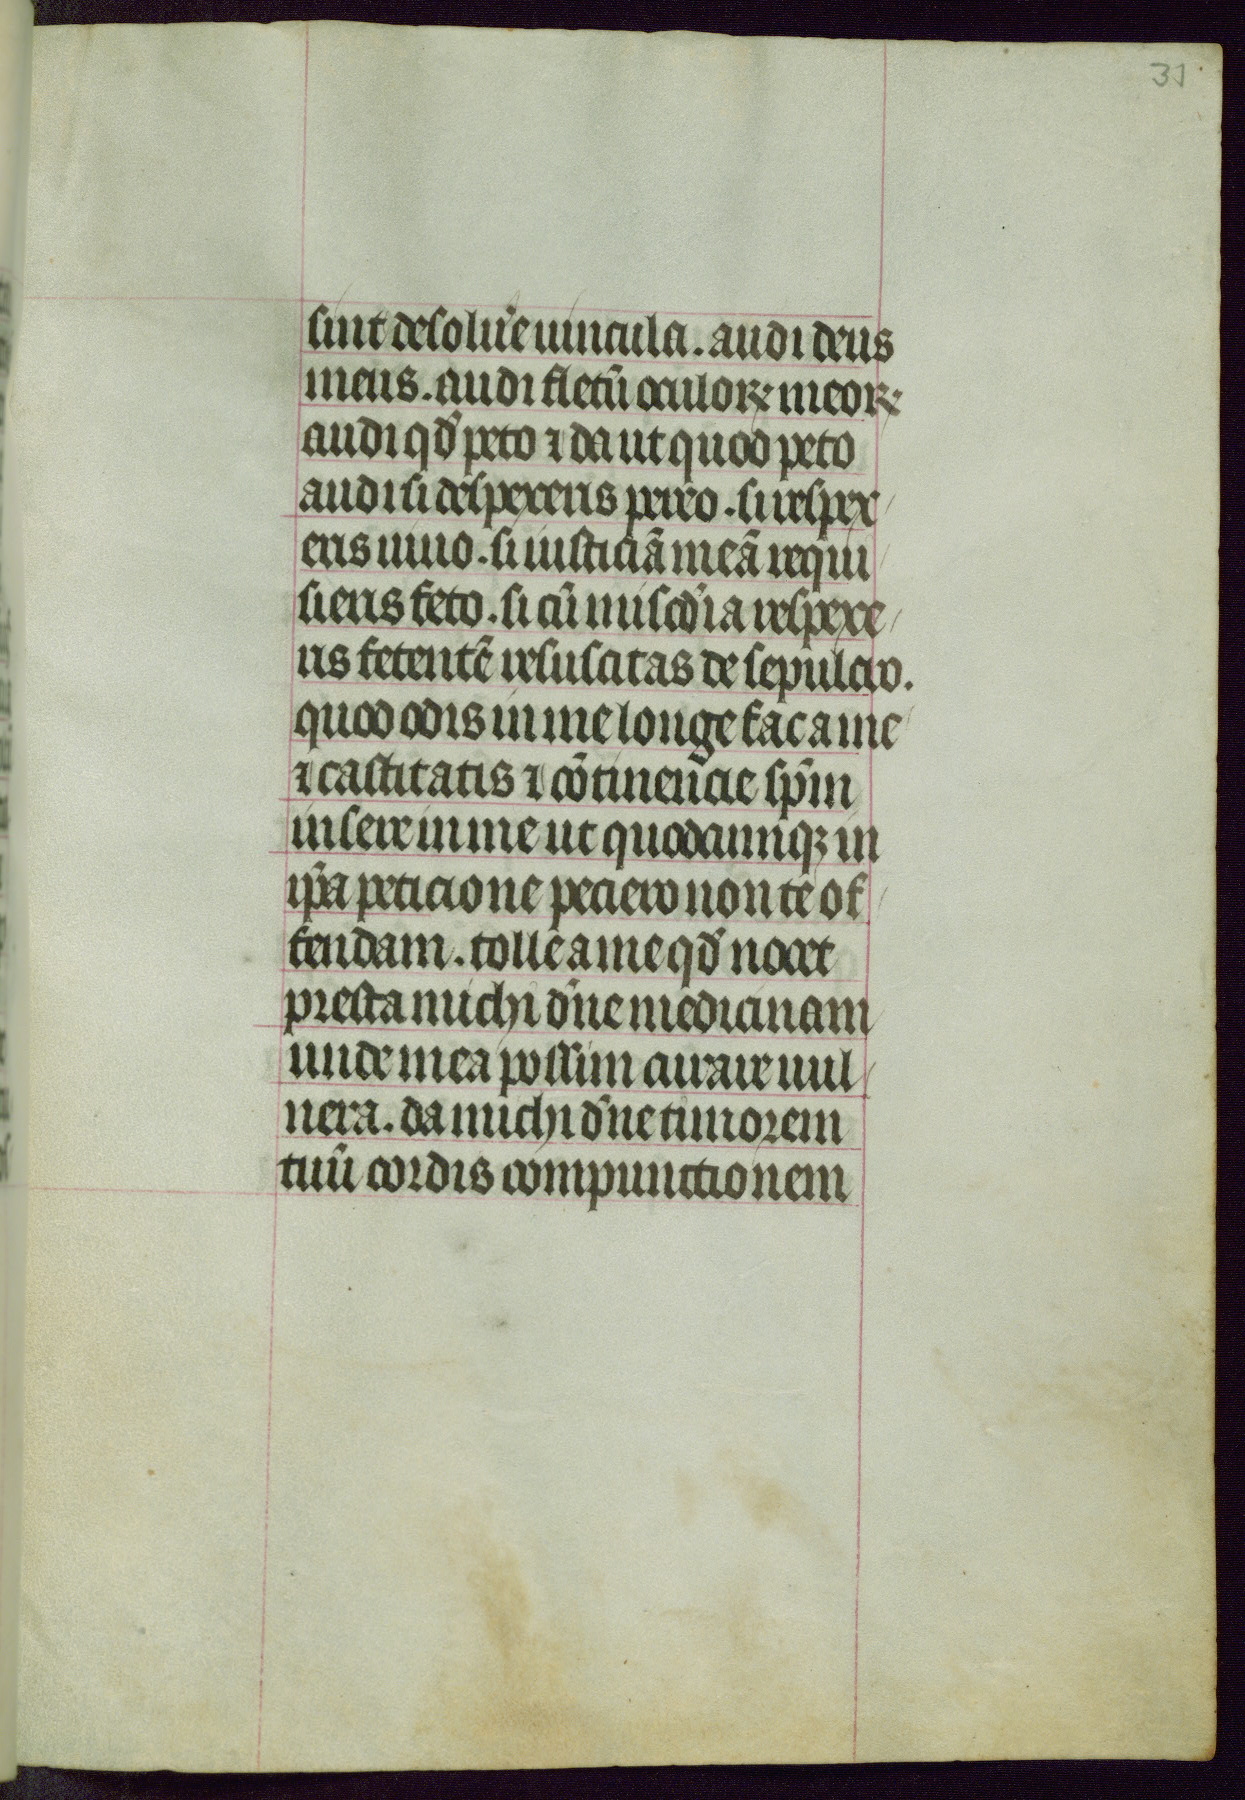 31
sint desolu̾e uincula. audi deus
meus. audi fletū oculoꝝ meoꝝ
audi qd̾ peto ⁊ da ut quod peto
audi si despexeris pereo. si respex
eris uiuo. si iusticiā meā requi
sieris feto. si cū misc̾dia respexe
ris fetentē resuscitas de sepulcro.
quod odis in me longe fac a me
⁊ castitatis ⁊ cōtinencie sp̄m
insere in me ut quodcumqꝫ in
ip̄a peticione peciero non te of
fendam. tolle a me qd̾ nocet
presta michi dn̄e medicinam
unde mea possim curare uul
nera. da michi dn̄e timorem
tuū cordis compunctionem